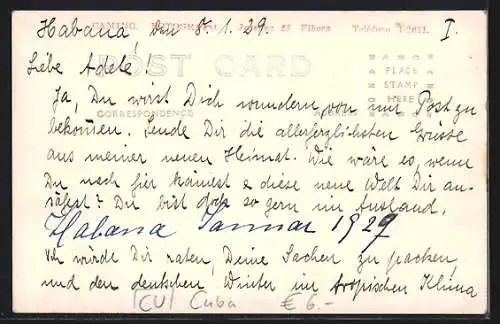 Habana, den 5.1.29. I.
CAMINO. FOTOGRAFIA Fibora Teléfono I-2631.
Liebe Adele!
POST CARD
PLACE
STAMP
HERE
Ja, Du wirst Dich wundern, von mir Post zu
CORRESPONDENCE ADDRESS
bekommen. Sende Dir die allerherzlichsten Grüsse
aus meiner neuen Heimat. Wie wäre es, wenn
Du nach hier kämest & diese neue Welt Dir an-
sähst? Du bist doch so gern im Ausland.
Habana Januar 1929
Ich würde Dir raten, Deine Sachen zu packen,
und den deutschen Winter im tropischen Klima
(CU) Cuba € 6.-